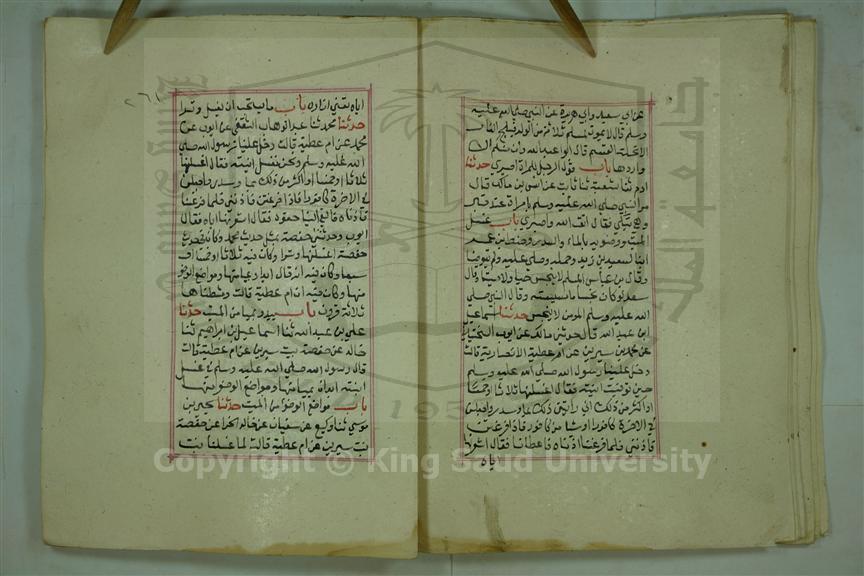 عن ابي سعيد وابي هريرة عن النبي صلى الله عليه
وسلم قال لا يموت لمسلم ثلاثة من الولد فيلج النار
الا تحلة القسم قال ابو عبد الله وان منكم الا
واردها باب قول الرجل للمراة اصبري حدثنا
ادم ثنا شعبة ثنا ثابت عن انس بن مالك قال
مر النبي صلى الله عليه وسلم بامراة عند قبر
وهي تبكي فقال اتقي الله واصبري باب غسل
الميت ووضويه بالماء والسدر وحنط بن عمر
ابنا لسعيد بن زيد وحمله وصلى عليه ولم يتوضا
وقال بن عباس المسلم لا ينجس حيا ولا ميتا وقال
سعد لو كان نجسا ما مسسته وقال النبي صلى
الله عليه وسلم المومن لا ينجس حدثنا اسماعيل
ابن عبد الله قال حدثني مالك عن ايوب السختياني
عن محمد بن سيرين عن ام عطية الانصارية قالت
دخل علينا رسول الله صلى الله عليه وسلم
حين توفيت ابنته فقال اغسلنها ثلاثا او خمسا
او اكثر من ذلك ان رايتن ذلك بماء وسدر واجعلن
في الاخرة كافورا او شيا من كافور فاذا فرغتن
فاذنني فلما فرغنا اذناه فاعطانا فقال اشعرنها
اياه
اياه تعني ازاره باب ما يستحب ان يغسل وترا
حدثنا محمد ثنا عبد الوهاب الثقفي عن ايوب عن
محمد عن ام عطية قالت دخل علينا رسول الله صلى
الله عليه وسلم ونحن نغسل ابنته فقال اغسلنها
ثلاثا او خمسا او اكثر من ذلك بماء وسدر واجعلن
في الاخرة كافورا فاذا فرغتن فاذنني فلما فرغنا
اذناه فالقى الينا حقوه فقال اشعرنها اياه فقال
ايوب وحدثتني حفصة بمثل حديث محمد وكان في حديث
حفصة اغسلنها وترا وكان فيه ثلاثا او خمسا او
سبعا وكان فيه انه قال ابدا بميامنها ومواضع الوضو
منها وكان فيه ان ام عطية قالت ومشطناها
ثلاثة قرون باب يبدا بميامن الميت حدثنا
علي بن عبد الله ثنا اسماعيل بن ابراهيم ثنا
خالد عن حفصة بنت سيرين عن ام عطية قالت
قال رسول الله صلى الله عليه وسلم في غسل
ابنته ابدان بميامنها ومواضع الوضو منها
باب مواضع الوضو من الميت حدثنا يحيى بن
موسى ثنا وكيع عن سفيان عن خالد الحذا عن حفصة
بنت سيرين عن ام عطية قالت لما غسلنا بنت
Copyright © King Saud University